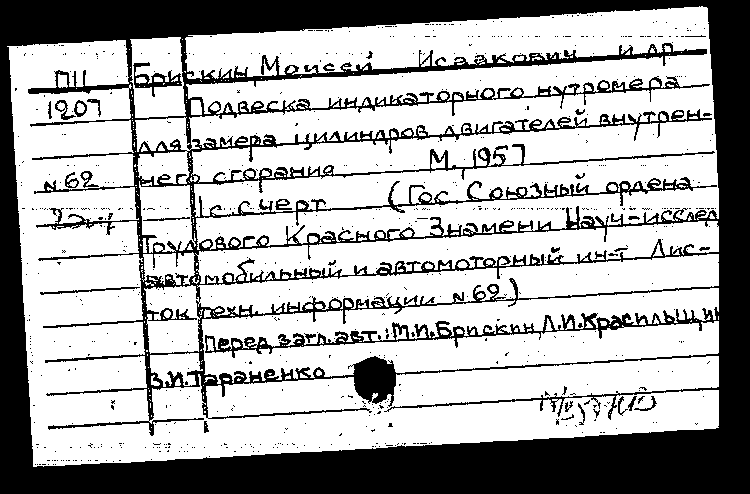 П11 Брискин, Моисей Исаакович и др.
1207 Подвеска индикаторного нутромера
для замера цилиндров двигателей внутрен-
№62 него сгорания М., 1957
1с. с черт (Гос. Союзный ордена
Трудового Красного Знамени Науч-исслед
автомобильный и автомоторный ин-т Лис-
ток техн. информации №62)
Перед загл. авт.: М.И. Брискин, Л.И. Красильщик
З.И. Тараненко